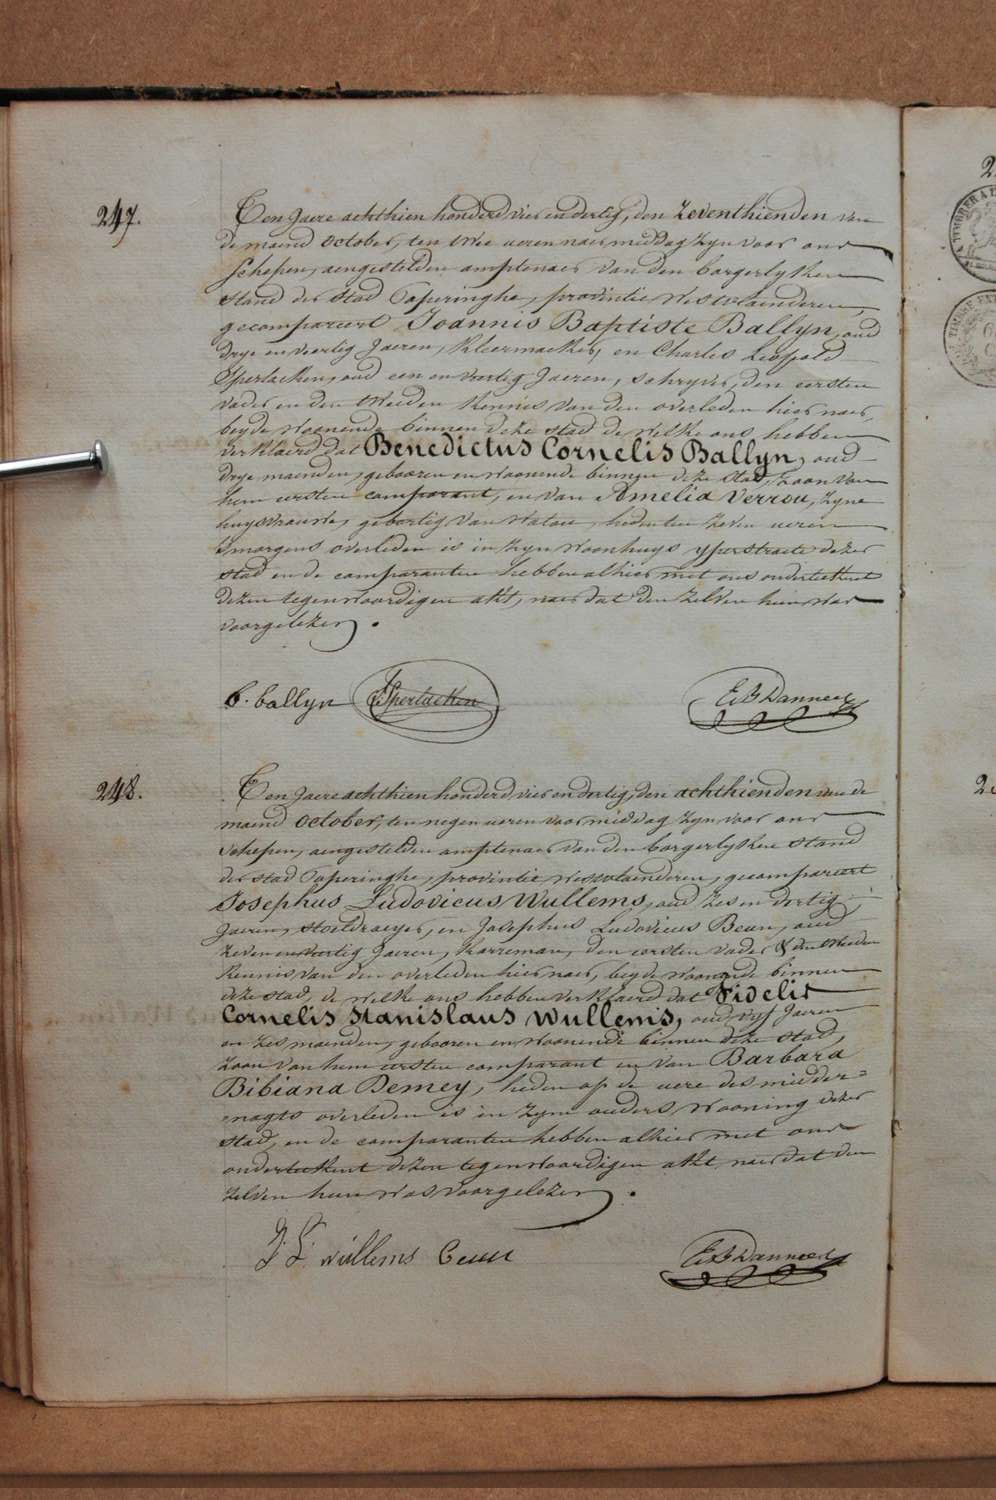 247.
Ten jaere achthien honderd vier en dertig, den zeventhienden van
de maend october, ten twee ueren naer middag zyn voor ons
schepen, aengestelden amptenaer van den borgerlyken
stand der stad Poperinghe, provintie westvlaenderen,
gecompareert Joannis Baptiste Ballyn, oud
drye en veertig jaeren, kleermaeker, en Charles Leopold
Sperlaeken, oud een en veertig jaeren, schryver, den eersten
vader en den tweeden kennis van den overleden hier naer,
beyde woonende binnen deze stad de welke ons hebben
verklaerd dat Benedictus Cornelis Ballyn, oud
drye maenden, gebooren en woonende binnen deze stad, zoon van
hem eersten comparant, en van Amelia Verrou, zyne
huysvrouwe, gebortig van Watou, heden ten zeven ueren
s'morgens overleden is in zyn woonhuys yperstraete dezer
stad en de comparanten hebben alhier met ons onderteekent
dezen tegenwoordigen akt, naer dat den zelven hun was
voorgelezen.
b. ballyn Sperlaeken E. B. Danneel
248.
Ten jaere achthien honderd vier en dertig, den achthienden van de
maend october, ten negen ueren voor middag zyn voor ons
schepen, aengestelden amptenaer van den borgerlyken stand
der stad Poperinghe, provintie westvlaenderen, gecompareert
Josephus Ludovicus Wullems, oud zes en dertig
jaeren, stoeldraeyer, en Josephus Ludovicus Beun, oud
zeven en veertig jaeren, karreman, den eersten vader & den tweeden
kennis van den overleden hier naer, beyde woonende binnen
deze stad, de welke ons hebben verklaerd dat Fidelis
Cornelis Stanislaus Wullems, oud vyf jaeren
en zes maenden, gebooren en woonende binnen deze stad,
zoon van hem eersten comparant en van Barbara
Bibiana Demey, heden op de uere des midder=
nagts overleden is in zyne ouders wooning dezer
stad, en de comparanten hebben alhier met ons
onderteekent dezen tegenwoordigen akt, naer dat den
zelven hun was voorgelezen.
J. L. wullems Beun E. B. Danneel